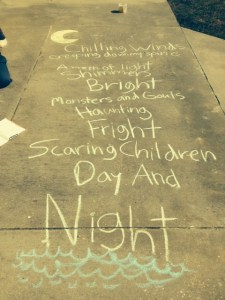 Chilling Winds
creeping down my spine
A of light
Shimmers
Bright
Monsters and Gouls
Haunting
Fright
Scaring Children
Day And
Night